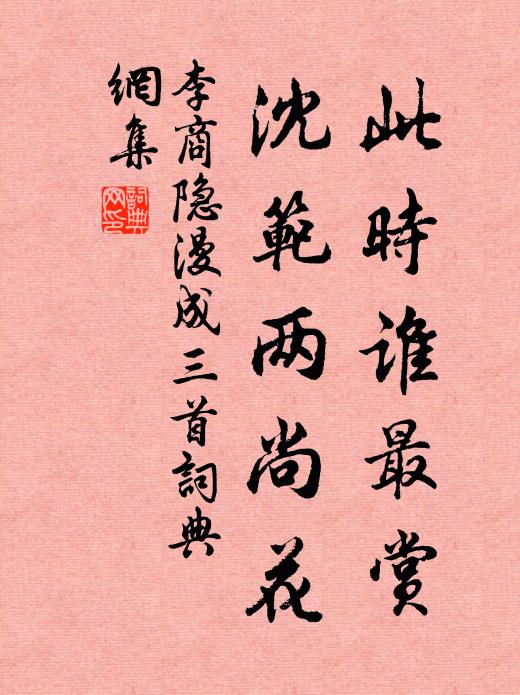 此時谁最赏
沈範两尚花
李商隐漫成三首詞典
網集
詞典网印